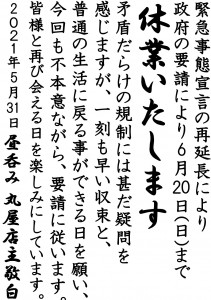 緊急事態宣言の再延長により
政府の要請により6月20日(日)まで
休業いたします
矛盾だらけの規制には甚だ疑問を
感じますが、一刻も早い収束と、
普通の生活に戻る事ができる日を願い、
今回も不本意ながら、要請に従います。
皆様と再び会える日を楽しみにしています。
2021年5月31日 昼呑み 丸屋店主敬白